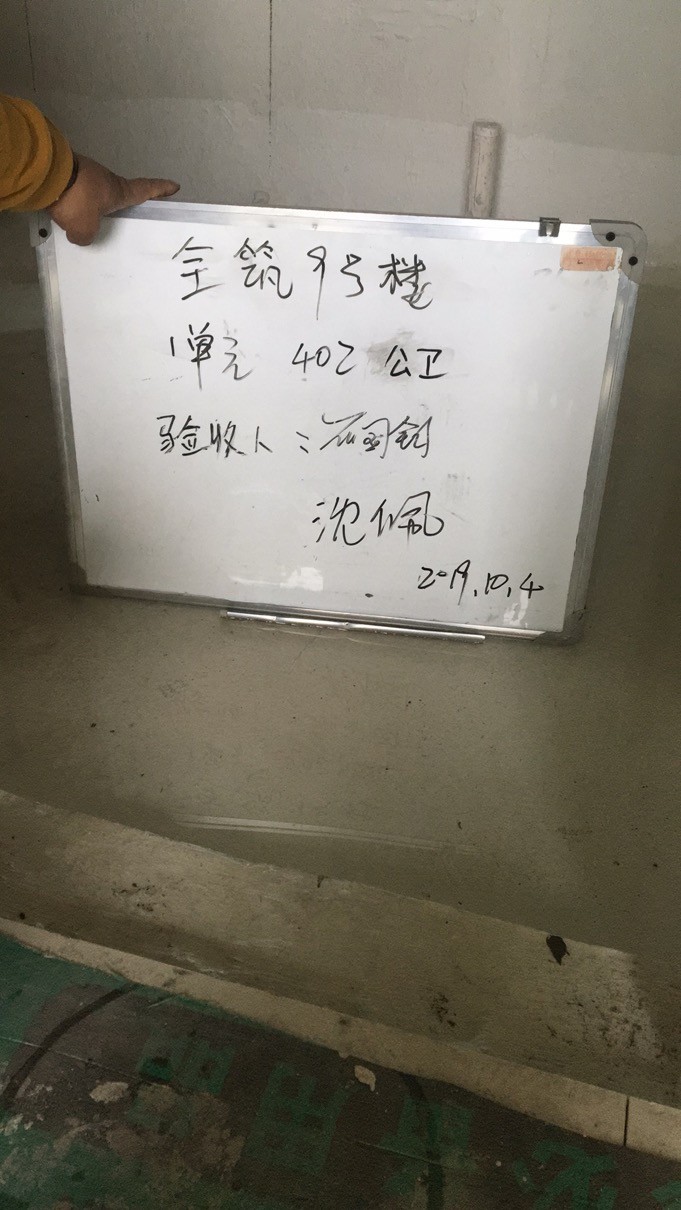 全筑9号楼
1单元 402 公卫
验收人:石国钊
沈佩
2019.10.4